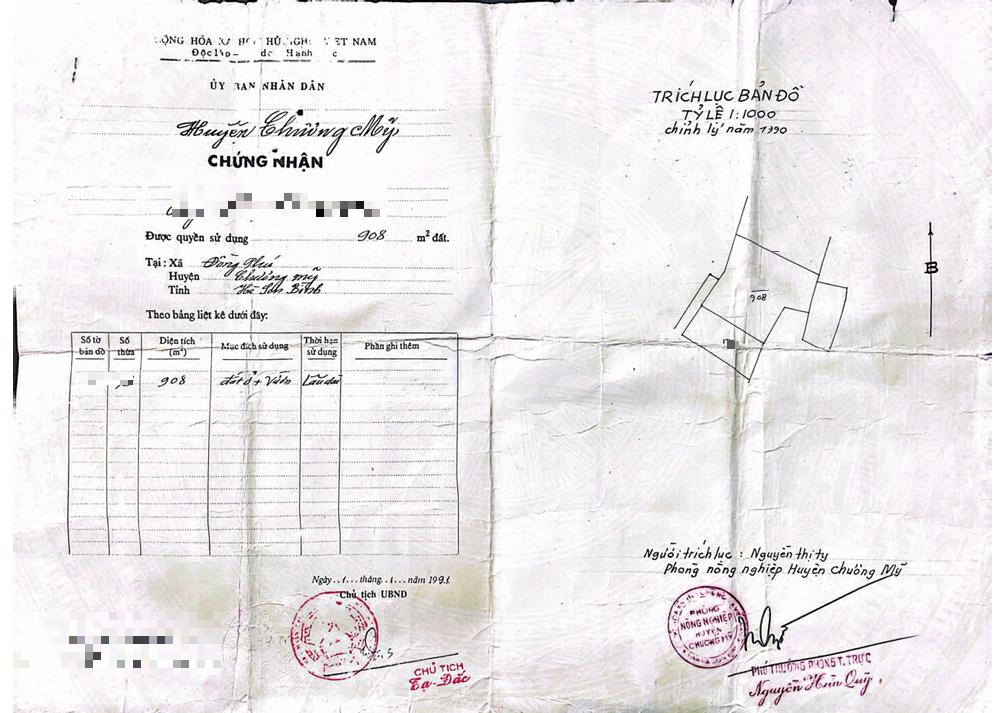 CỘNG HÒA XÃ HỘI CHỦ NGHĨA VIỆT NAM
Độc lập – do Hạnh
ỦY BAN NHÂN DÂN
Huyện Chương Mỹ
CHỨNG NHẬN
Được quyền sử dụng 908 m² đất.
Tại : Xã Đồng Phú
Huyện Chương mỹ
Tỉnh Hà Sơn Bình
Theo bảng liệt kê dưới đây:
Số tờ bản đồ Số thửa Diện tích (m²) Mục đích sử dụng Thời hạn sử dụng Phần ghi thêm
908 đất ở + Vườn Lâu dài
Ngày..1...tháng..1...năm 1991
Chủ tịch UBND
CHỦ TỊCH
Tạ-Đắc
TRÍCH LỤC BẢN ĐỒ
TỶ LỆ 1:1000
chỉnh lý năm 1990
908
B
Người trích lục : Nguyễn thị ty
Phòng nông nghiệp Huyện Chương Mỹ
PHÒNG
NÔNG NGHIỆP
HUYỆN
CHƯƠNG MỸ
PHÓ TRƯỞNG PHÒNG T. TRỰC
Nguyễn Hữu Quỹ